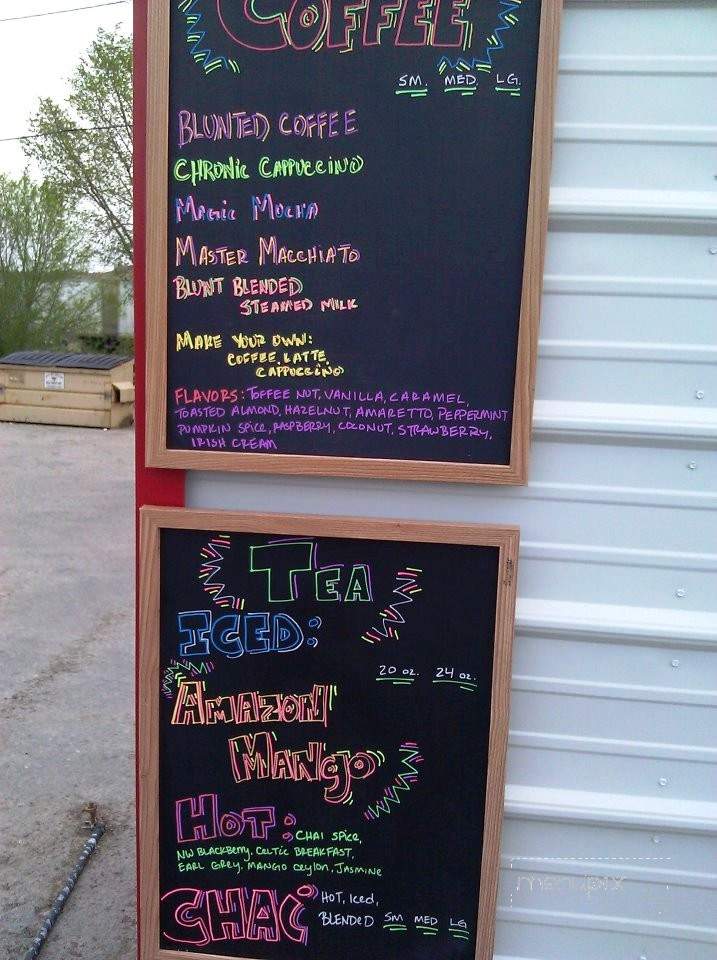 COFFEE
SM. MED. LG.
BLUNTED COFFEE
CHRONIC CAPPUCCINO
MAGIC MOCHA
MASTER MACCHIATO
BLUNT BLENDED
STEAMED MILK
MAKE YOUR OWN:
COFFEE, LATTE,
CAPPUCCINO
FLAVORS: TOFFEE NUT, VANILLA, CARAMEL,
TOASTED ALMOND, HAZELNUT, AMARETTO, PEPPERMINT
PUMPKIN SPICE, RASPBERRY, COCONUT, STRAWBERRY,
IRISH CREAM
TEA
ICED:
20 oz. 24 oz.
AMAZON
MANGO
HOT: CHAI SPICE,
NW BLACKBERRY, CELTIC BREAKFAST,
EARL GREY, MANGO CEYLON, JASMINE
CHAI HOT, ICED,
BLENDED SM MED LG
menupix